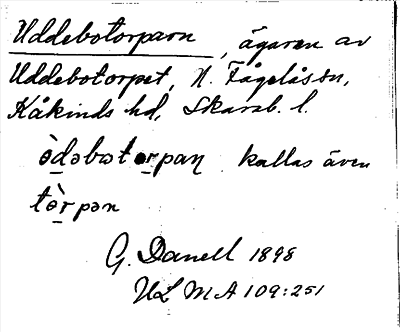 Uddebotorparn, ägaren av
Uddebotorpet, N. Fågelåssn,
Kåkinds hd, Skarab. l.
ò̠dəbəto̠rpaṇ kallas även
tò̠rpən
G. Danell 1898
ULMA 109:251